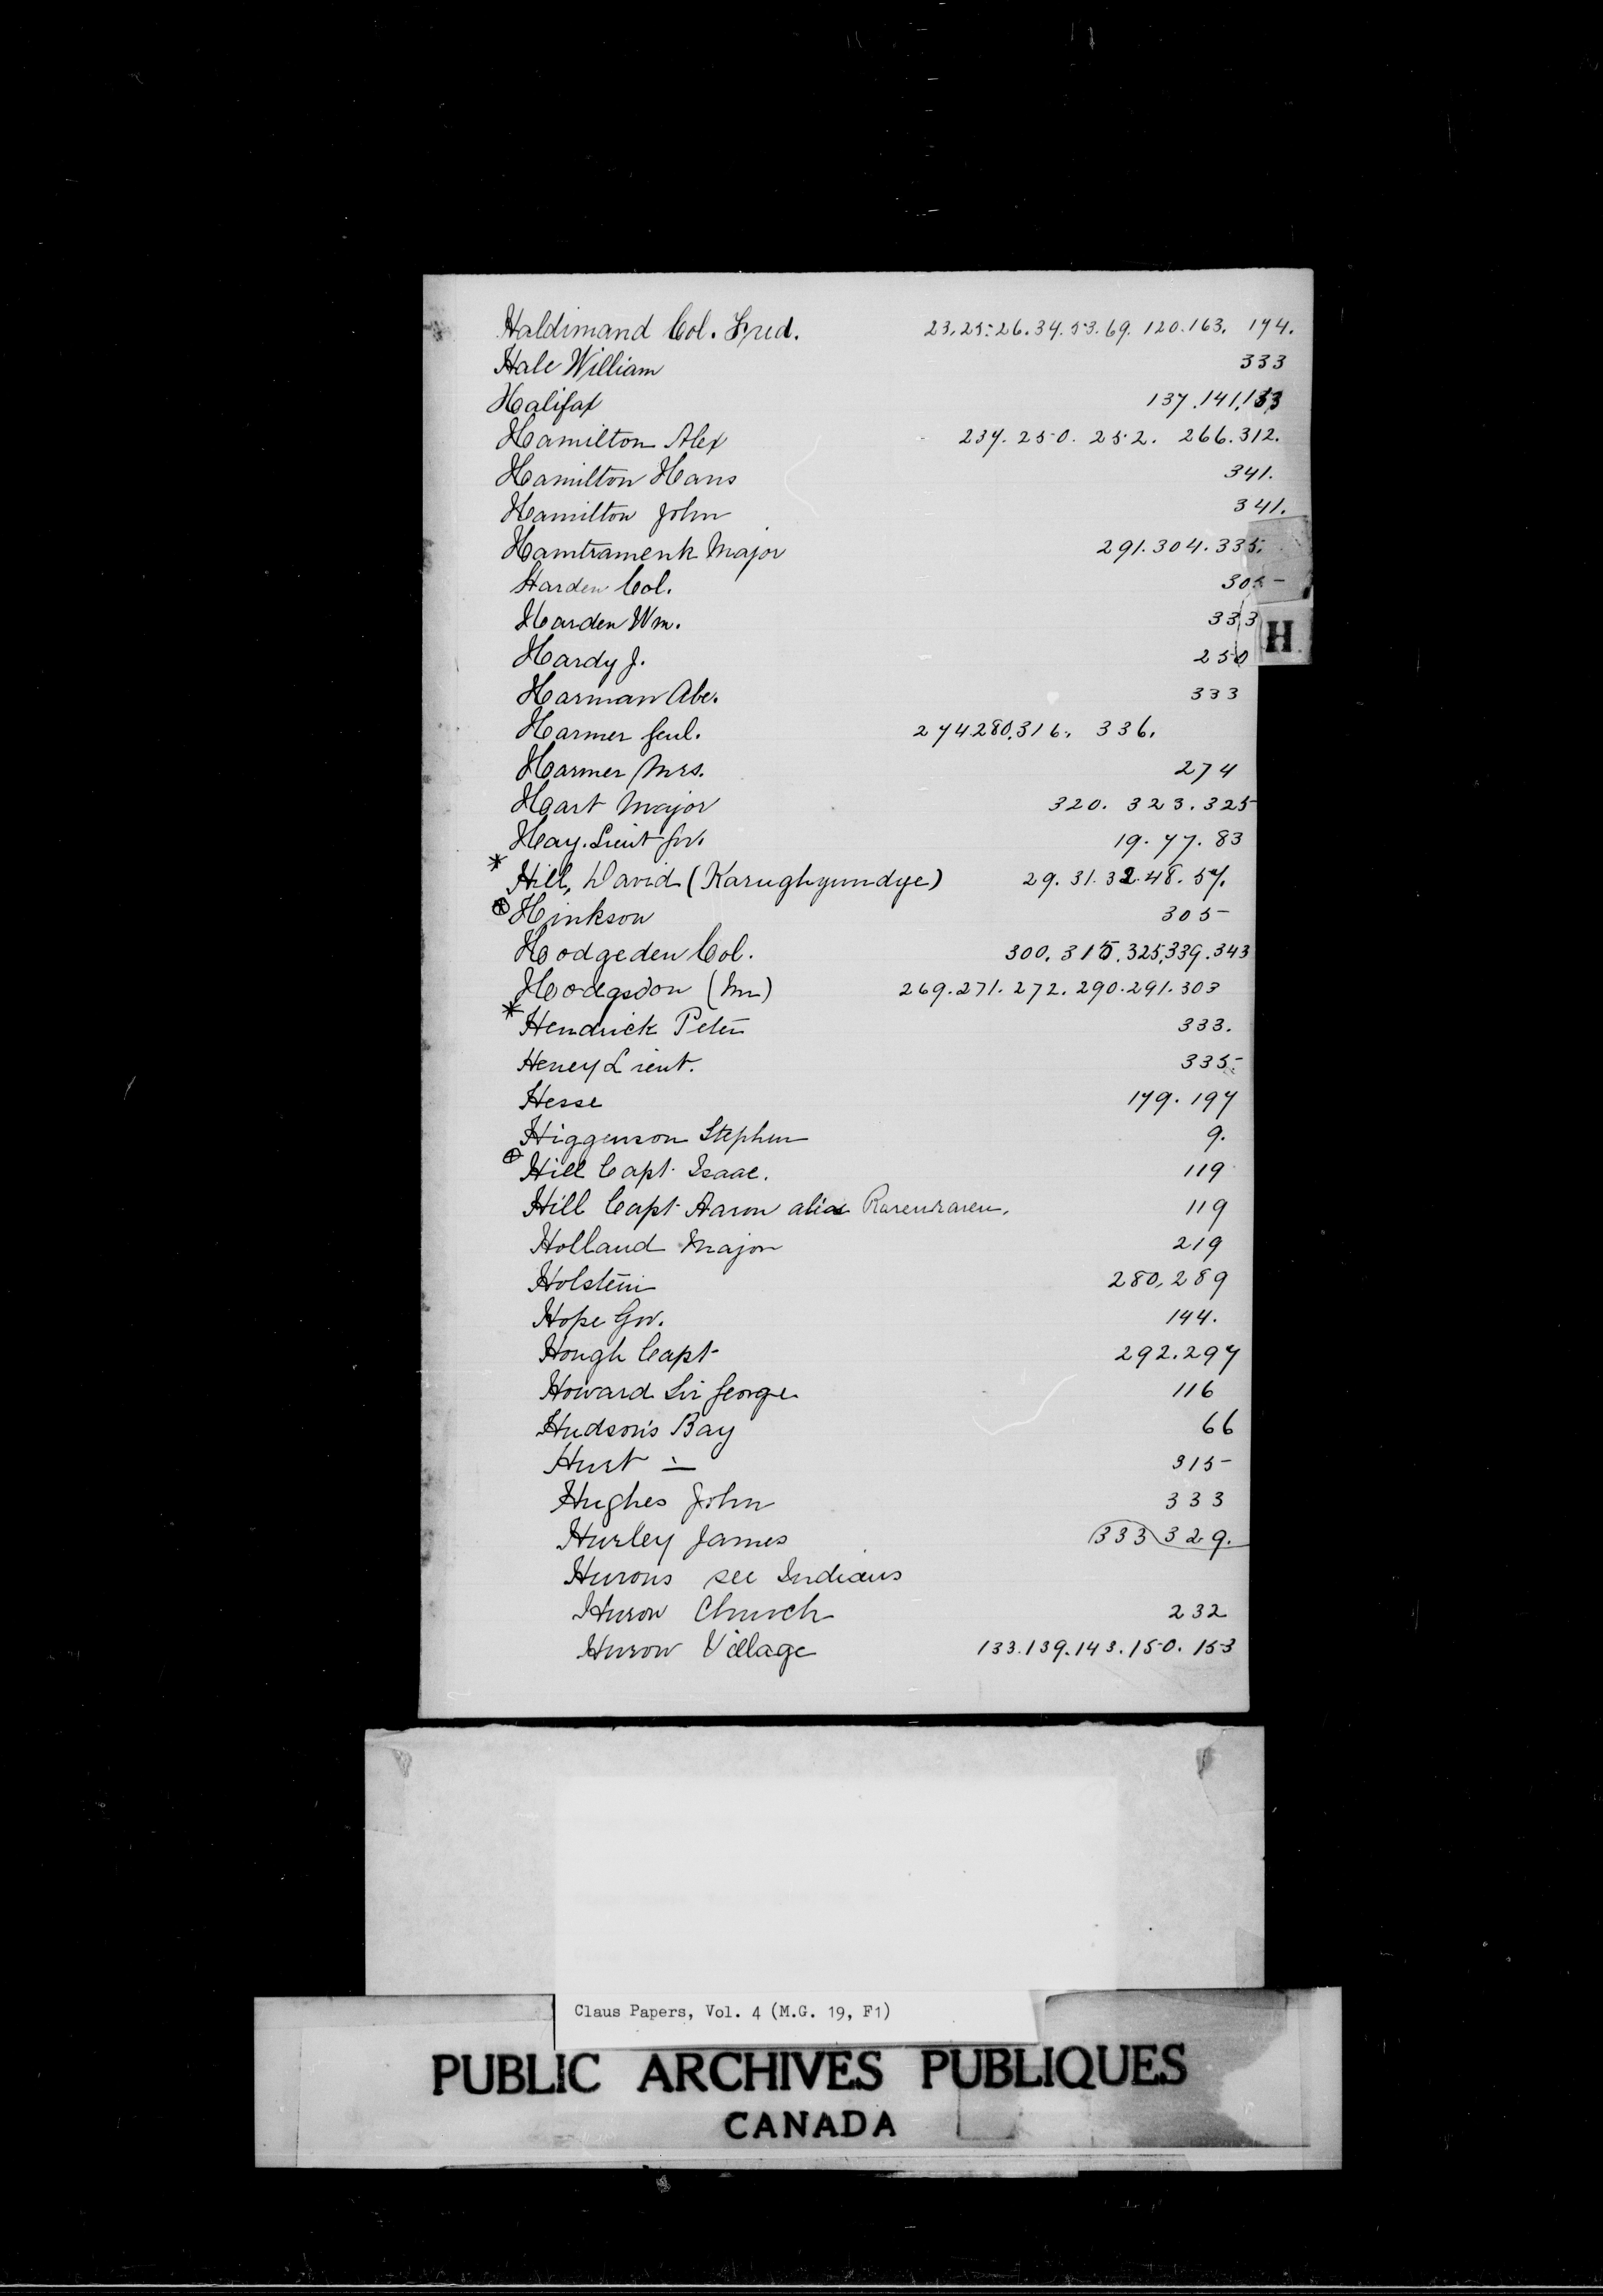 Haldimand Col. Fred. 23.25.26.34.53.69.120.163. 174.
Hale William 333
Halifax 137.141,153
Hamilton Alex 237.250.252. 266.312.
Hamilton Hans 341.
Hamilton John 341.
Hamtramenk Major 291.304.335.
Harden Col. 305
H
Harden Wm. 333
Hardy J. 250
Harman Abe. 333
Harmer Genl. 274280.316. 336.
Harmer Mrs. 274
Haart Major 320. 323.325
Hay. Lieut Gov. 19.77.83
* Hill, David (Karughyundye) 29.31.32.48.57.
⊕ Hinkson 305
Hodgeden Col. 300.315.325,339.343
Hodgsdon (Mr) 269.271.272.290.291.303
* Hendrick Peter 333.
Heney Lieut. 335.
Hesse 179.197
Higgenson Stephen 9.
⊕ Hill Capt. Isaac. 119
Hill Capt. Aaron alias 119
Holland Major 219
Holstein 280,289
Hope Gov. 144.
Hough Capt 292.297
Howard Sir George 116
Hudson's Bay 66
Hurt — 315
Hughes John 333
Hurley James 333 329.
Hurons see Indians
Huron Church 232
Huron Village 133.139.143.150.153
Claus Papers, Vol. 4 (M.G. 19, F1)
PUBLIC ARCHIVES PUBLIQUES
CANADA